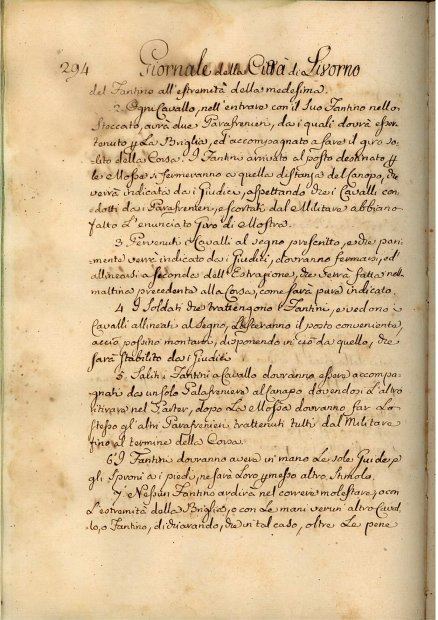 294 Giornale della Città di Livorno
del Fantino all'estremità della medesima.
2. Ogni Cavallo, nell'entrare con il suo Fantino nello
Steccato, avrà due Parafrenieri, da i quali dovrà esser
tenuto p. la Briglia, ed accompagnato a fare il giro so-
lito della Corsa. I Fantini arrivati al posto destinato p.
le Mosse si fermeranno a quella distanza del canapo, che
verrà indicata da i Giudici, aspettando che i Cavalli con-
dotti da i Parafrenieri, e scortati dal Militare abbiano
fatto l'enunciato Giro di Mostra.
3. Pervenuti i Cavalli al segno prescritto, e che pari-
mente verrà indicato da i Giudici, dovranno fermarsi, ed
allinearsi a seconda dell'Estrazione, che verrà fatta nella
mattina precedente alla Corsa, come sarà pure indicato.
4. I Soldati che trattengono i Fantini, e vedono i
Cavalli allineati al Segno, lasceranno il posto conveniente,
acciò possino montare, disponendo in ciò da quello, che
sarà stabilito da i Giudici.
5. Saliti i Fantini a Cavallo dovranno essere accompa-
gnati da un solo Palafreniere al Canapo dovendosi l'altro
ritirare nel Parter, dopo la Mossa dovranno far lo
stesso gl'altri Parafrenieri trattenuti tutti dal Militare
fino al termine della Corsa.
6. I Fantini dovranno avere in mano le sole Guide, e
gli Sproni a i piedi, ne sarà loro p.messo altro stimolo.
7. Nessun Fantino ardirà nel correre molestare, o con
l'estremità della Briglia, o con le mani verun altro Caval-
lo, o Fantino, dichiarando, che in tal caso, oltre le pene